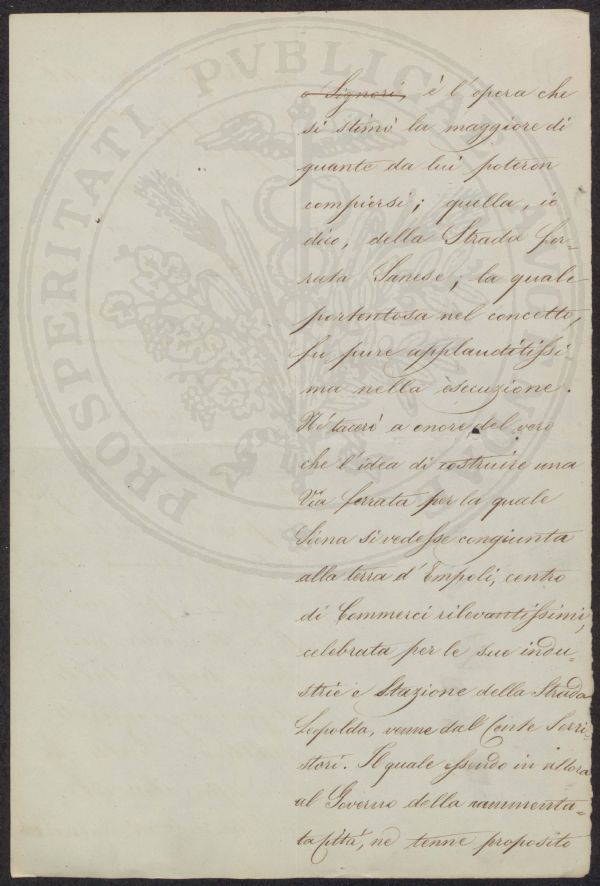 PROSPERITATI PVBLICAE AVGENDAE
o Signori, è l'opera che
si stimò la maggiore di
quante da lui poteron
compiersi; quella, io
dico, della Strada fer-
rata Sanese; la quale
portentosa nel concetto,
fu pure applauditissi-
ma nella esecuzione.
Né tacerò a onore del vero
che l'idea di costruire una
Via ferrata per la quale
Siena si vedesse congiunta
alla terra d'Empoli, centro
di Commerci rilevantissimi,
celebrata per le sue indu-
strie e Stazione della Strada
Leopolda, venne dal Conte Serri-
stori. Il quale essendo in allora
al Governo della rammenta-
ta Città, ne tenne proposito